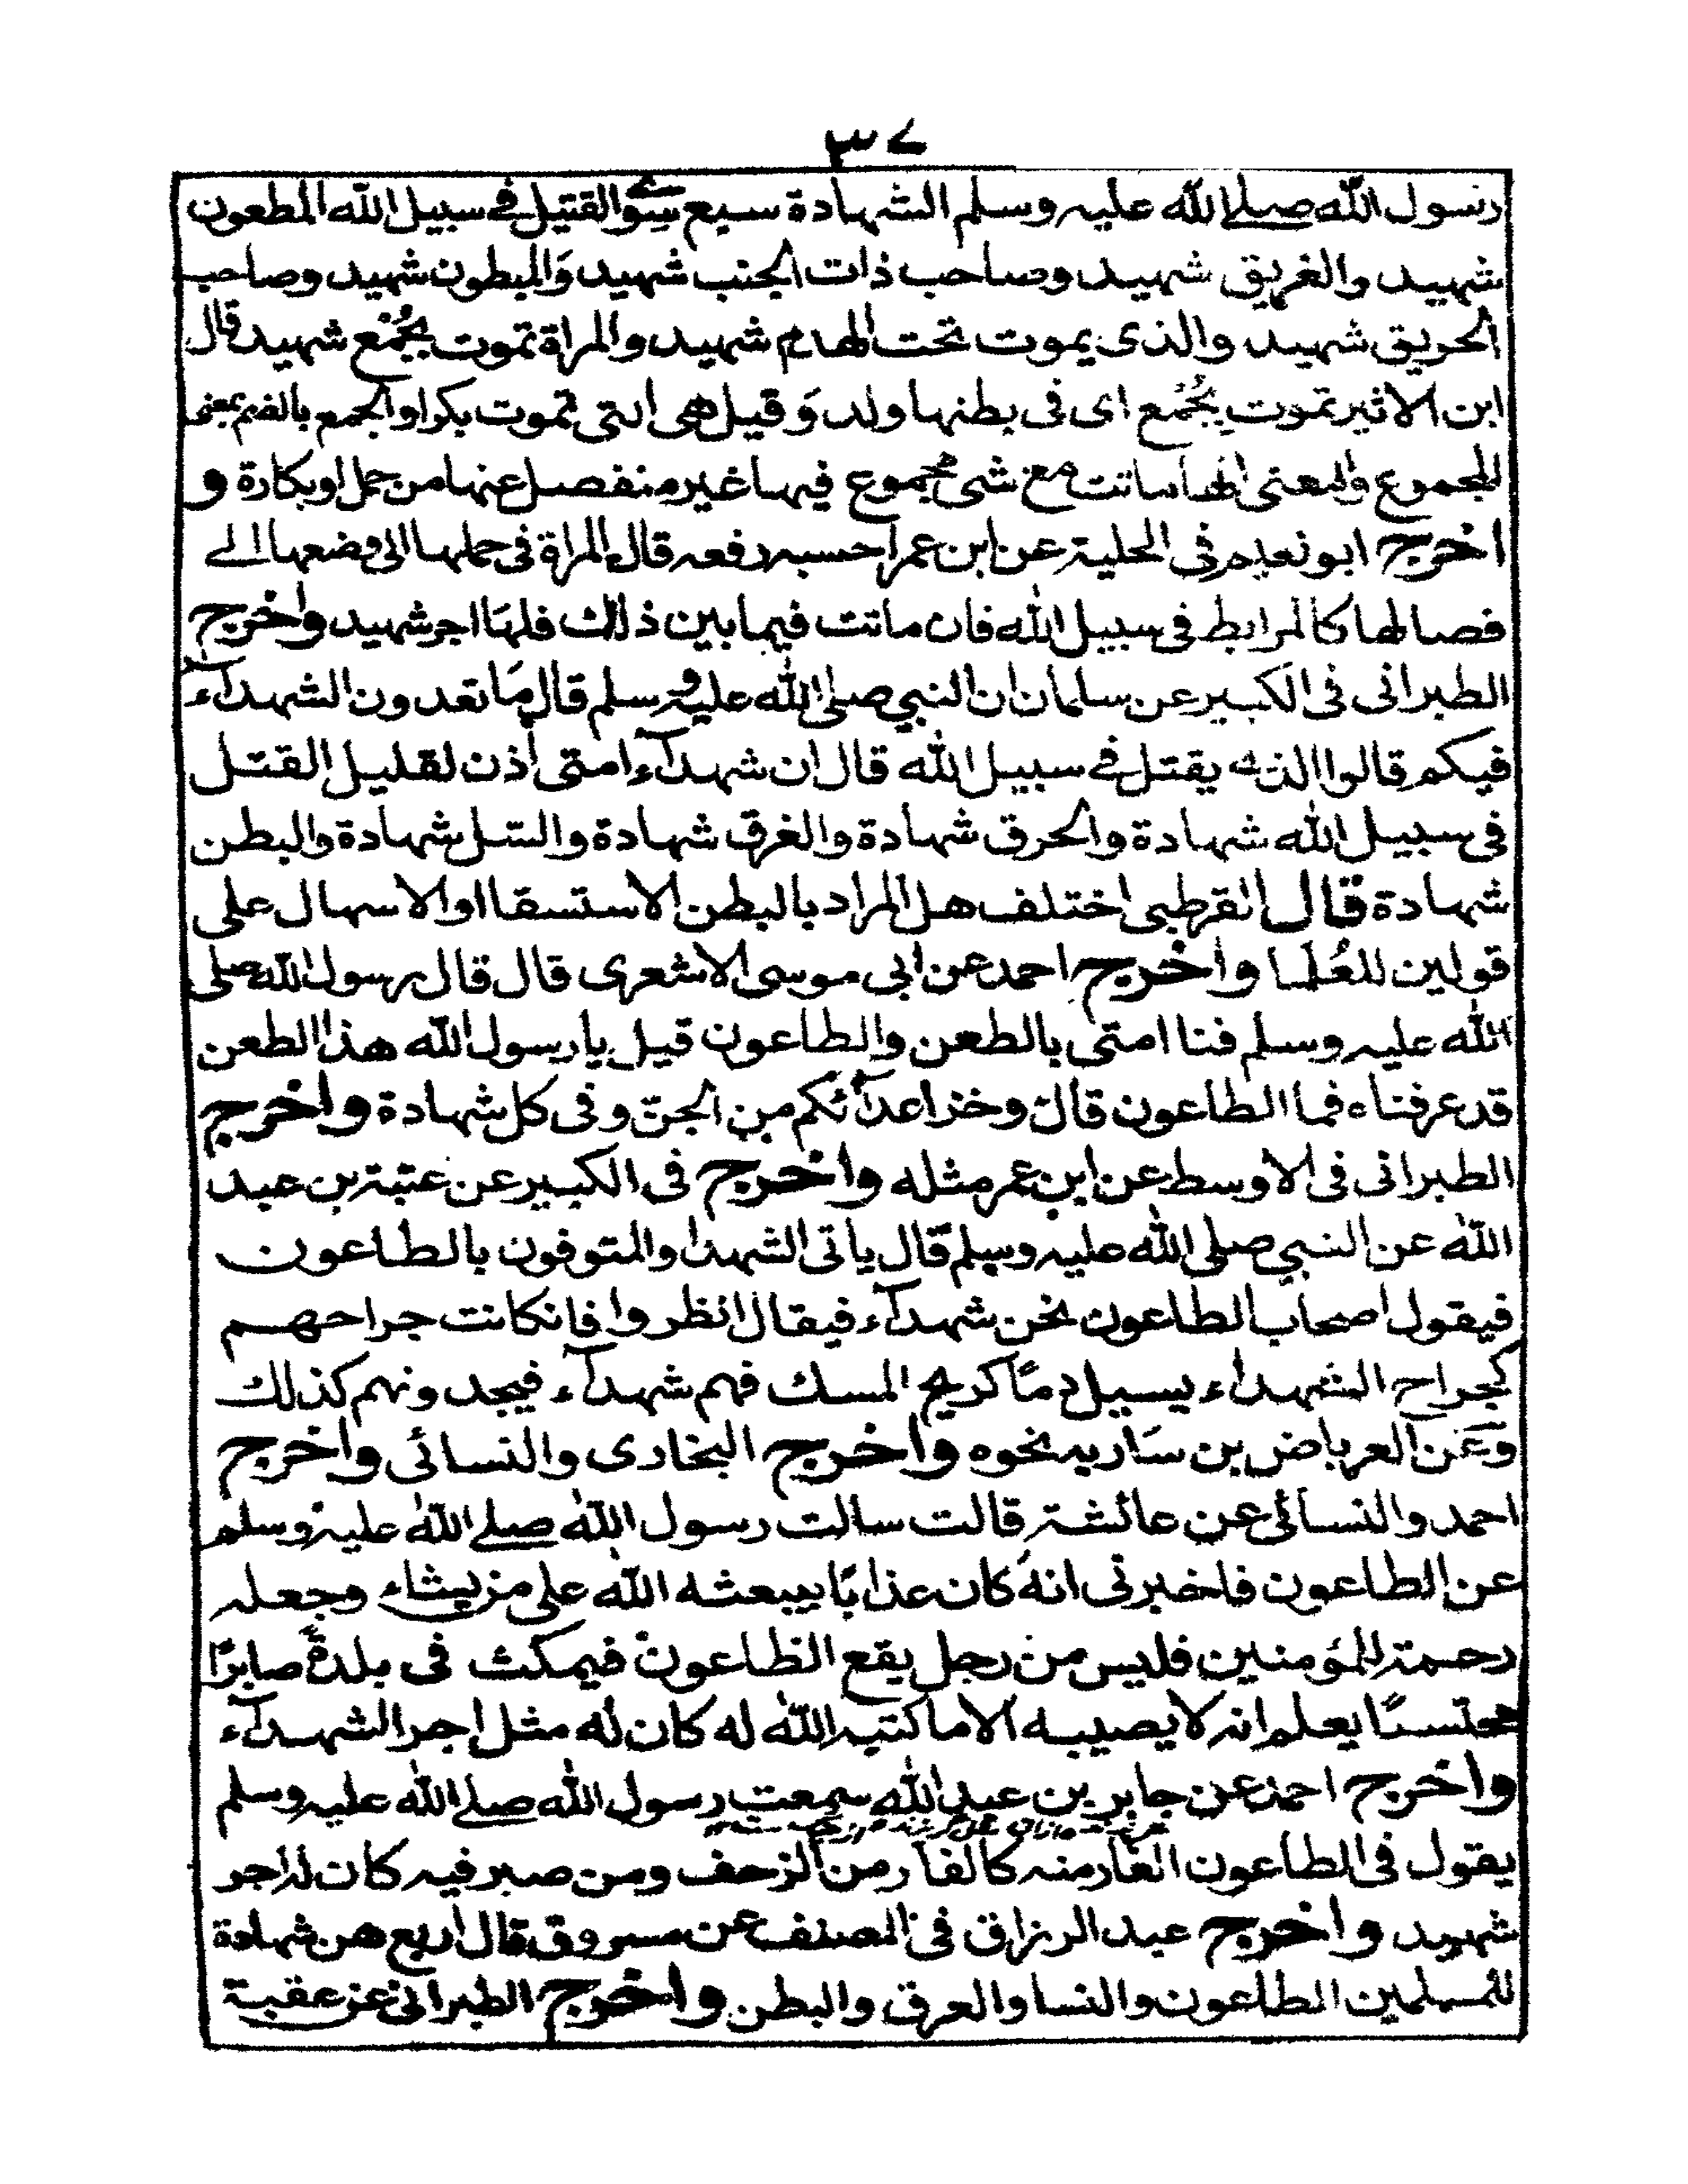 ٣٧
رسول الله صلے الله عليه وسلم الشهادة سبع سوے القتيل فے سبيل الله المطعون
شهيد والغريق شهيد وصاحب ذات الجنب شهيد وَالمبطون شهيد وصاحب
الحريق شهيد والذى يموت تحت الهدم شهيد والمراة تموت بِجُمْعٍ شهيد قال
ابن الاثير تموت بِجُمْع اى فى بطنها ولد وَقيل هى التى تموت بكرا والجمع بالضم بمعنى
المجموع والمعنى انها ماتت مع شى مجموع فيها غير منفصل عنها من حمل او بكارة و
اخرج ابو نعيم فى الحلية عن ابن عمر احسبه رفعه قال المراة فى حملها الى وضعها الے
فصالها كالمرابط فى سبيل الله فان ماتت فيما بين ذلك فلهَا اجر شهيد واخرج
الطبرانى فى الكبير عن سلمان ان النبي صلى الله عليه وسلم قال مَا تعدون الشهدآء
فيكم قالوا الذے يقتل فے سبيل الله قال ان شهدآء امتى اذن لقليل القتل
فى سبيل الله شهادة والحرق شهادة والغرق شهادة والسّل شهادة والبطن
شهادة قال القرطبى اختلف هل المراد بالبطن الاستسقا او الاسهال على
قولين للعُلَما واخرج احمد عن ابى موسى الاشعرى قال قال رسول الله صلى
الله عليه وسلم فنا امتى بالطعن والطاعون قيل يا رسول الله هذا الطعن
قد عرفناه فما الطاعون قال وخز اعدآئكم من الجن وفى كل شهادة واخرج
الطبرانى فى الاوسط عن ابن عمر مثله واخرج فى الكبير عن عتبة بن عبد
الله عن النبي صلى الله عليه وسلم قال ياتى الشهدا والمتوفون بالطاعون
فيقول اصحاب الطاعون نحن شهدآء فيقال انظروا فانكانت جراحهم
كجراح الشهداء يسيل دمًا كريح المسك فهم شهدآء فيجدونهم كذلك
وَعَن العرباض بن سَاريه نحوه واخرج البخارى والنسائى واخرج
احمد والنسآئى عن عائشة قالت سالت رسول الله صلے الله عليه وسلم
عن الطاعون فاخبرنى انهُ كان عذابًا يبعثه الله على من يشاء وجعله
رحمة للمؤمنين فليس من رجل يقع الطاعون فيمكث فى بلدهٖ صابرًا
محتسبًا يعلم انه لا يصيبه الا ما كتبه الله له كان له مثل اجر الشهدآء
واخرج احمد عن جابر بن عبد الله سمعت رسول الله صلے الله عليه وسلم
يقول فى الطاعون الفار منه كالفار من الزحف ومن صبر فيه كان له اجر
شهيد واخرج عبد الرزاق فى المصنف عن مسروق قال اربع هن شهادة
للمسلمين الطاعون والنسا والعرق والبطن واخرج الطبرانى عن عقبة